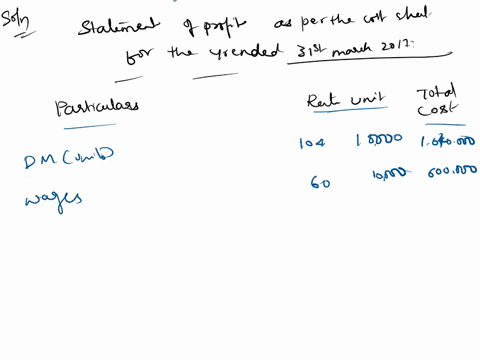 Soln Statement of profit as per the cost sheet
for the yr ended 31st march 2017.
Particulars Rate unit Total Cost
DM (units) 104 10,000 1.040.000
wages 60 10,000 600.000